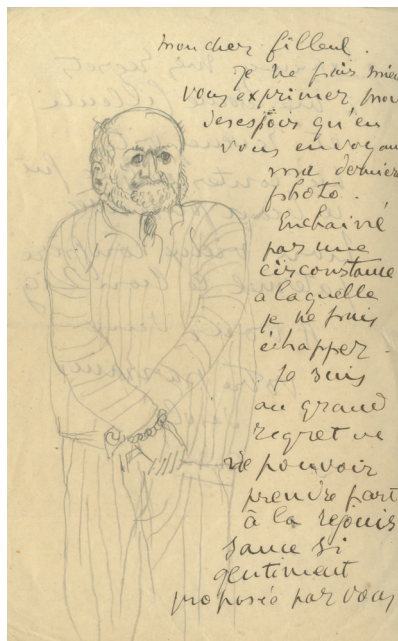 mon cher filleul.
je ne puis mieux
vous exprimer mon
desespoirs qu'en
vous envoyant
ma dernier
photo.
Enchainé
par une
circonstance
à laquelle
je ne puis
échapper.
Je suis
au grand
regret de
ne pouvoir
prendre part
à la rejouis
sance si
gentiment
proposée par vous